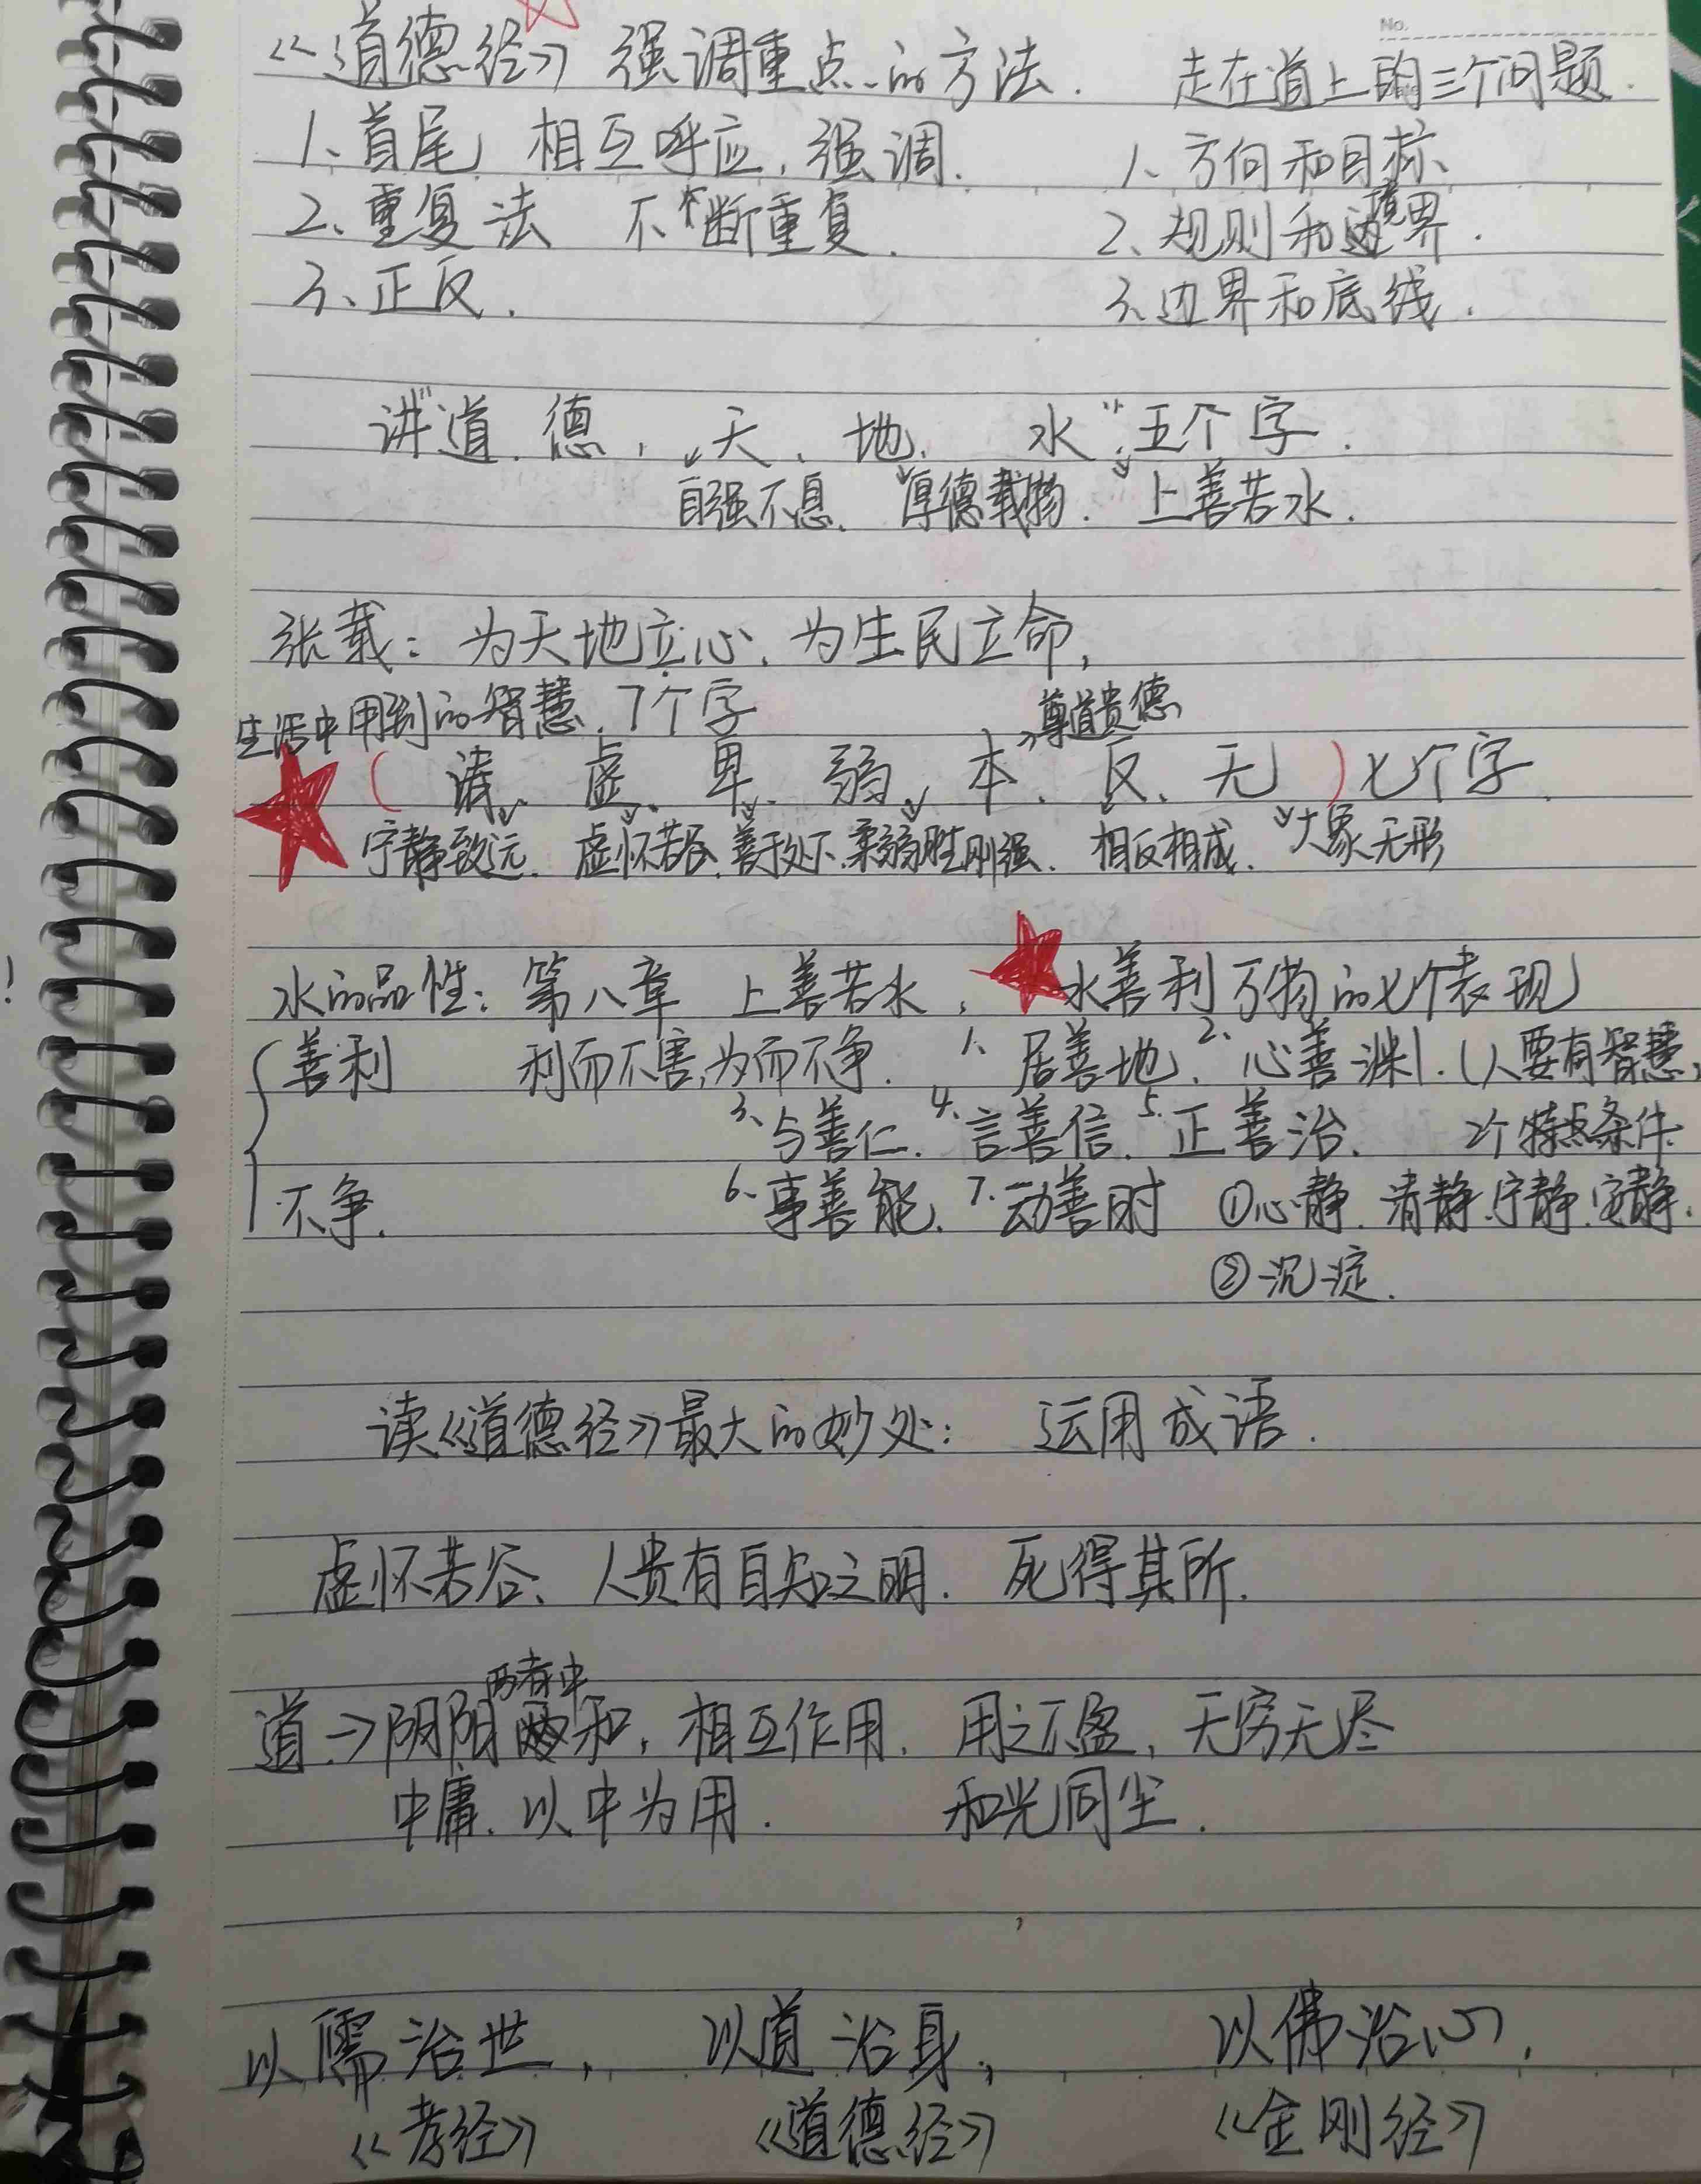 《道德经》强调重点的方法. 走在道上的三个问题.
1、首尾 相互呼应,强调. 1、方向和目标
2、重复法 不断重复. 2、规则和境界.
3、正反. 3、边界和底线.
讲"道、德、天、地、水"五个字.
自强不息. 厚德载物. 上善若水.
张载:为天地立心、为生民立命,
生活中用到的智慧,7个字 尊道贵德
(清、虚、卑、弱、本、反、无)七个字.
宁静致远. 虚怀若谷、善于处下、柔弱胜刚强. 相反相成. 大象无形
水的品性:第八章 上善若水, 水善利万物的七个表现
善利 利而不害,为而不争. 1、居善地、2、心善渊.(人要有智慧,
3、与善仁. 4、言善信. 5、正善治. 2个特点条件
不争. 6、事善能. 7、动善时 ①心静.清静.宁静.安静.
②沉淀.
读《道德经》最大的妙处: 运用成语.
虚怀若谷、人贵有自知之明. 死得其所.
两者中
道→阴阳和,相互作用. 用之不盈,无穷无尽
中庸.以中为用. 和光同尘.
以儒治世, 以道治身, 以佛治心,
《孝经》 《道德经》 《金刚经》